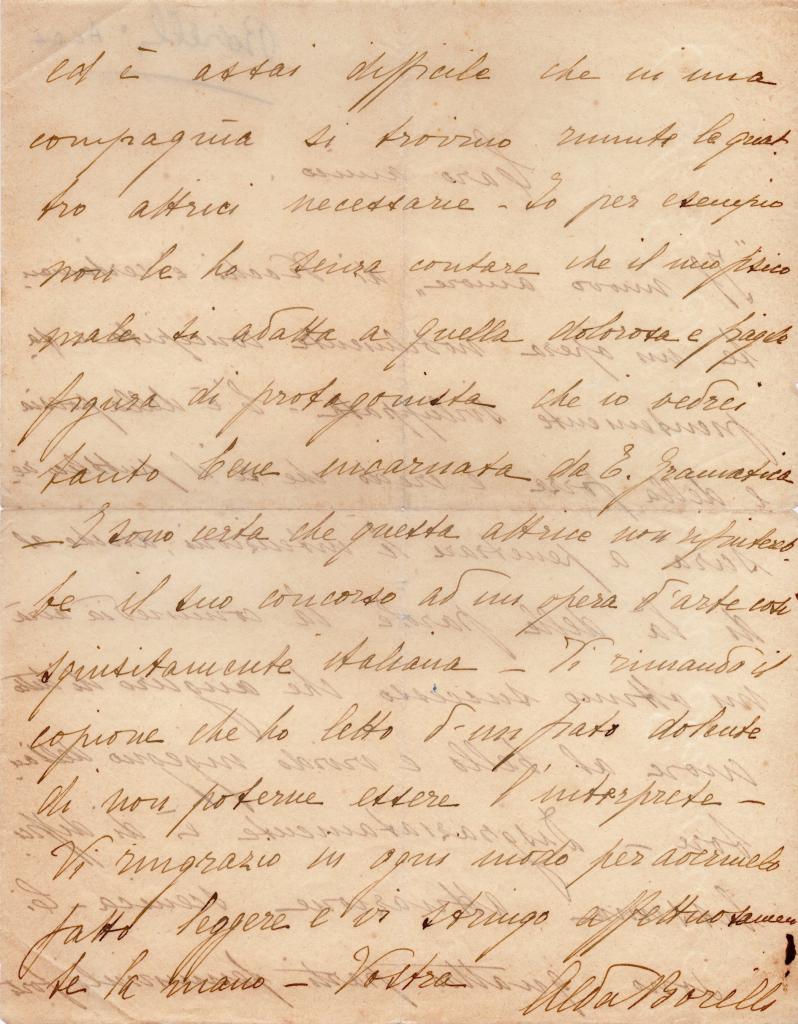 ed è assai difficile che in una
compagnia si trovino riunite le quat
tro attrici necessarie - Io per esempio
non le ho senza contare che il mio fisico
male si adatta a quella dolorosa e fragile
figura di protagonista che io vedrei
tanto bene incarnata da E. Gramatica
- E sono certa che questa attrice non rifiutereb
be il suo concorso ad un opera d'arte così
squisitamente italiana - Vi rimando il
copione che ho letto d'un fiato dolente
di non poterne essere l'interprete -
Vi ringrazio in ogni modo per avermelo
fatto leggere e vi stringo affettuosamen
te la mano - Vostra
Alda Borelli